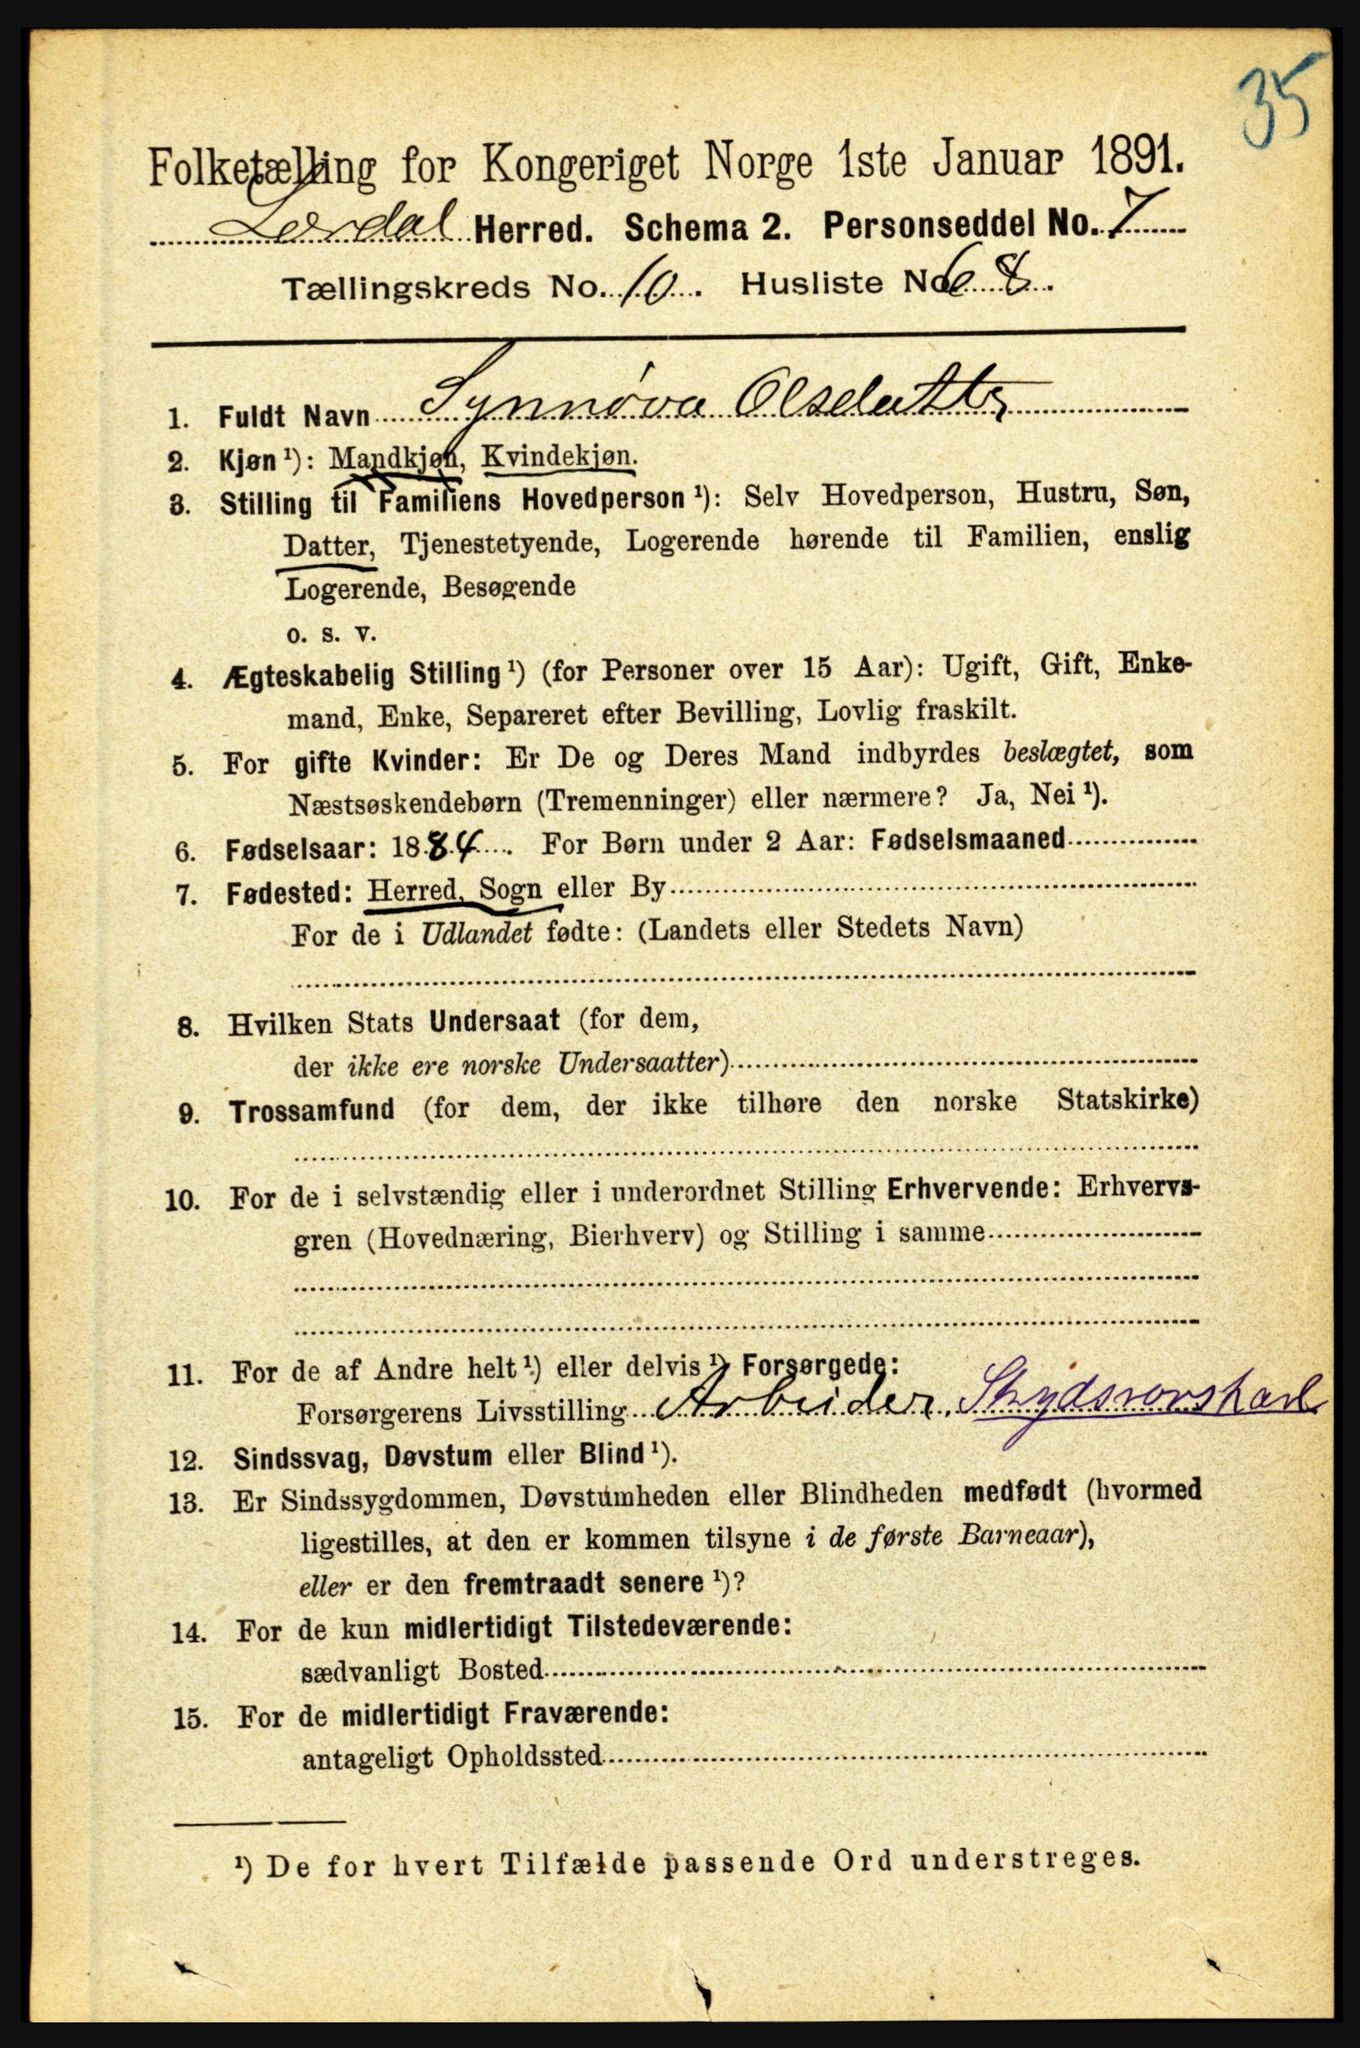 35
Folketælling for Kongeriget Norge 1ste Januar 1891.
Lærdal Herred. Schema 2. Personseddel No. 7
Tællingskreds No. 10. Husliste No. 68.
1. Fuldt Navn Synnøva Olsdatter
2. Kjøn ¹): Mandkjøn, Kvindekjøn.
3. Stilling til Familiens Hovedperson ¹): Selv Hovedperson, Hustru, Søn,
Datter, Tjenestetyende, Logerende hørende til Familien, enslig
Logerende, Besøgende
o. s. v.
4. Ægteskabelig Stilling ¹) (for Personer over 15 Aar): Ugift, Gift, Enke-
mand, Enke, Separeret efter Bevilling, Lovlig fraskilt.
5. For gifte Kvinder: Er De og Deres Mand indbyrdes beslægtet, som
Næstsøskendebørn (Tremenninger) eller nærmere? Ja, Nei ¹).
6. Fødselsaar: 1884. For Børn under 2 Aar: Fødselsmaaned
7. Fødested: Herred, Sogn eller By
For de i Udlandet fødte: (Landets eller Stedets Navn)
8. Hvilken Stats Undersaat (for dem,
der ikke ere norske Undersaatter)
9. Trossamfund (for dem, der ikke tilhøre den norske Statskirke)
10. For de i selvstændig eller i underordnet Stilling Erhvervende: Erhvervs-
gren (Hovednæring, Bierhverv) og Stilling i samme
11. For de af Andre helt ¹) eller delvis ¹) Forsørgede:
Forsørgerens Livsstilling Arbeider. Skydsrorskarl
12. Sindssvag, Døvstum eller Blind ¹).
13. Er Sindssygdommen, Døvstumheden eller Blindheden medfødt (hvormed
ligestilles, at den er kommen tilsyne i de første Barneaar),
eller er den fremtraadt senere ¹)?
14. For de kun midlertidigt Tilstedeværende:
sædvanligt Bosted
15. For de midlertidigt Fraværende:
antageligt Opholdssted
¹) De for hvert Tilfælde passende Ord understreges.